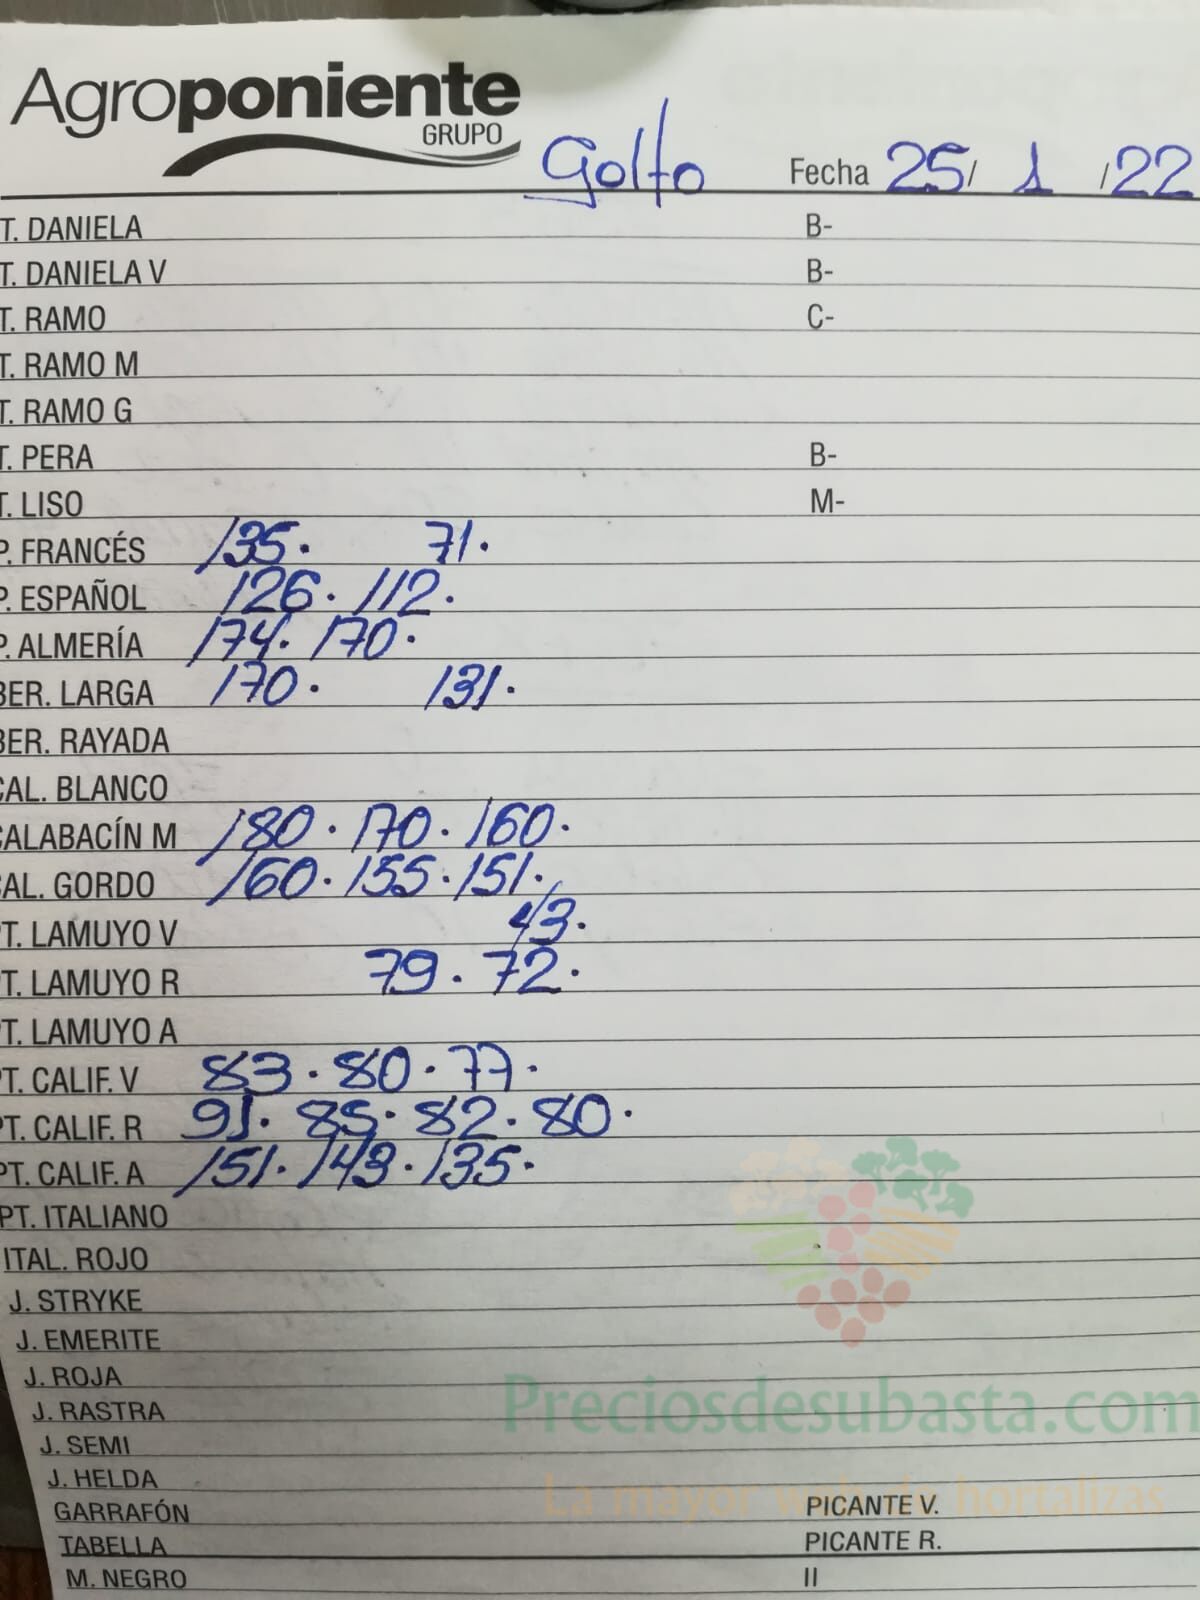 Agroponiente
GRUPO
Golfo Fecha 25/ 1 /22
T. DANIELA B-
T. DANIELA V B-
T. RAMO C-
T. RAMO M
T. RAMO G
T. PERA B-
T. LISO M-
P. FRANCÉS 135. 71.
P. ESPAÑOL 126. 112.
P. ALMERÍA 174. 170.
BER. LARGA 170. 131.
BER. RAYADA
CAL. BLANCO
CALABACÍN M 180. 170. 160.
CAL. GORDO 160. 155. 151.
PT. LAMUYO V 43.
PT. LAMUYO R 79. 72.
PT. LAMUYO A
PT. CALIF. V 83. 80. 77.
PT. CALIF. R 91. 85. 82. 80.
PT. CALIF. A 151. 143. 135.
PT. ITALIANO
ITAL. ROJO
J. STRYKE
J. EMERITE
J. ROJA
Preciosdesubasta.com
J. RASTRA
J. SEMI
J. HELDA
La mayor web de hortalizas
GARRAFÓN PICANTE V.
TABELLA PICANTE R.
M. NEGRO II